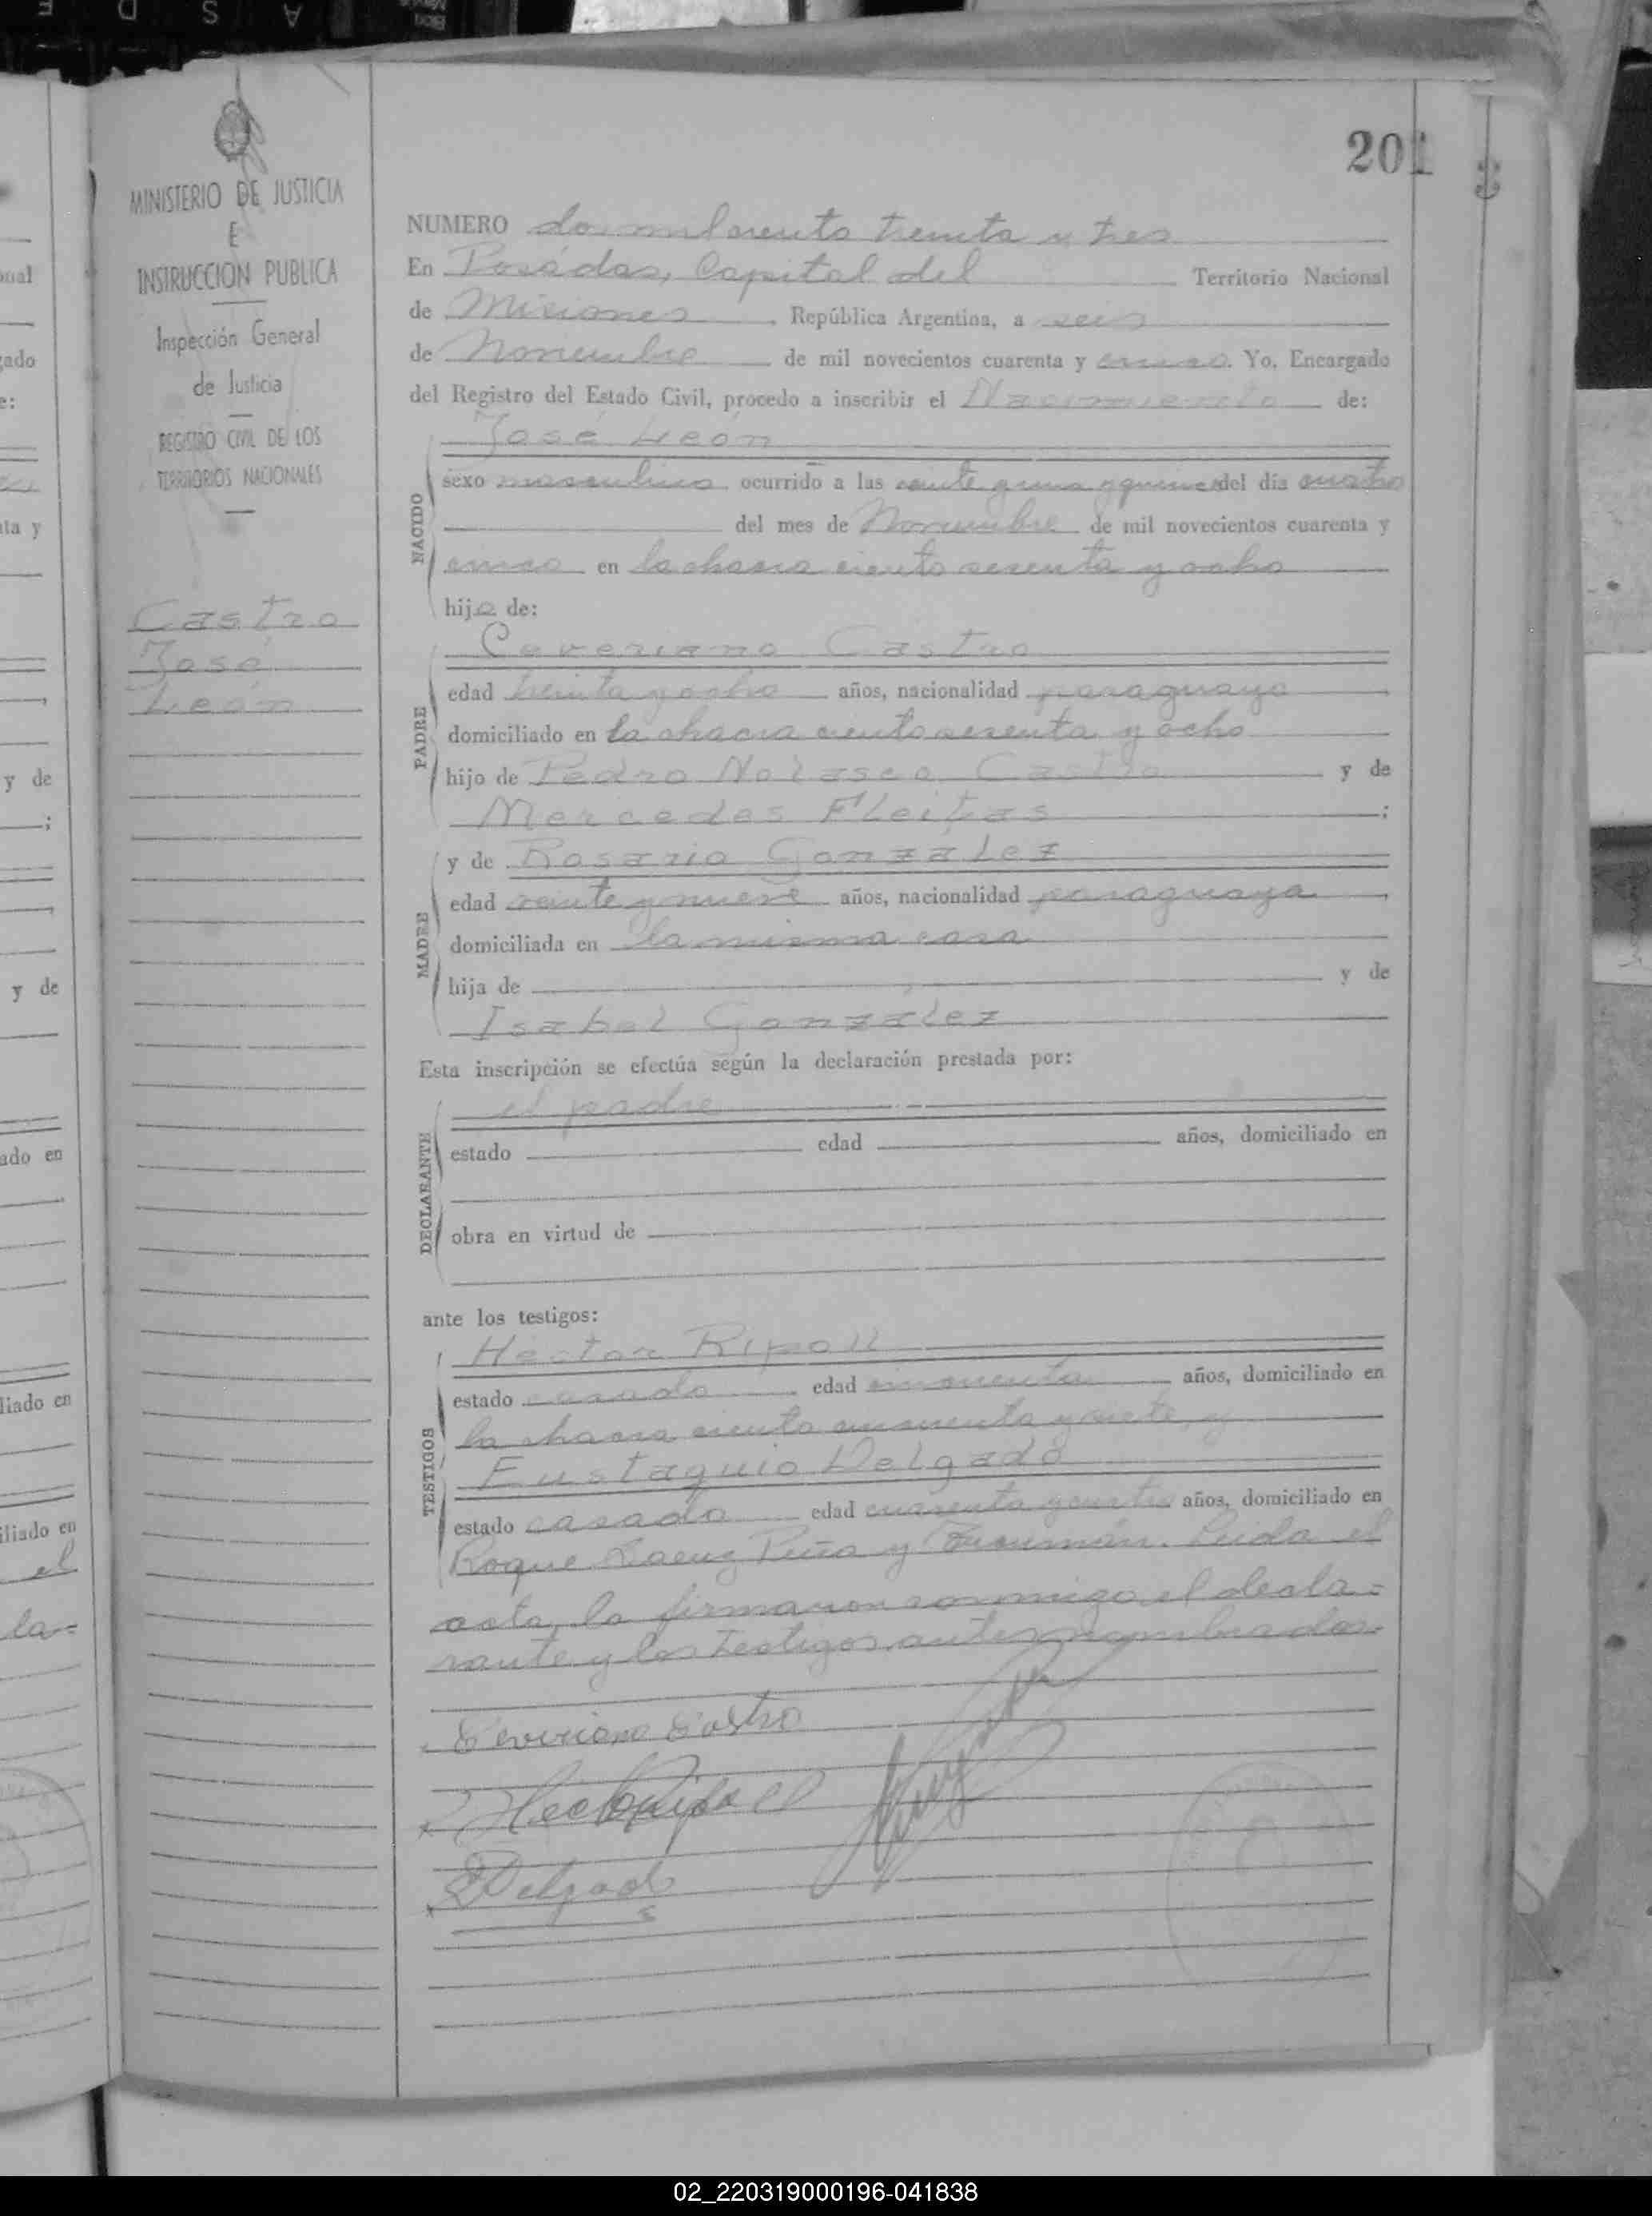 201
MINISTERIO DE JUSTICIA
E
INSTRUCCION PUBLICA
Inspección General
de Justicia
REGISTRO CIVIL DE LOS
TERRITORIOS NACIONALES
Castro
José
León
NUMERO dos mil ciento treinta y tres
En Posadas, Capital del Territorio Nacional
de Misiones, República Argentina, a seis
de Noviembre de mil novecientos cuarenta y cinco. Yo, Encargado
del Registro del Estado Civil, procedo a inscribir el Nacimiento de:
José León
NACIDO
sexo masculino ocurrido a las veinte y una y quince del día cuatro
del mes de Noviembre de mil novecientos cuarenta y
cinco en la chacra ciento sesenta y ocho
hijo de:
Ceveriano Castro
PADRE
edad treinta y ocho años, nacionalidad paraguayo,
domiciliado en la chacra ciento sesenta y ocho
hijo de Pedro Nolasco Castro y de
Mercedes Fleitas;
y de Rosario González
MADRE
edad veinte y nueve años, nacionalidad paraguaya,
domiciliada en la misma casa
hija de y de
Isabel González
Esta inscripción se efectúa según la declaración prestada por:
el padre
DECLARANTE
estado edad años, domiciliado en
obra en virtud de
ante los testigos:
Hector Ripoll
TESTIGOS
estado casado edad cincuenta años, domiciliado en
la chacra ciento cincuenta y siete, y
Eustaquio Delgado
estado casado edad cuarenta y cuatro años, domiciliado en
Roque Saenz Peña y Tucumán. Leida el
acta, la firmaron conmigo el decla=
rante y los testigos antes nombrados.
Severiano Castro
Hector Ripoll
E Delgado
02_220319000196-041838